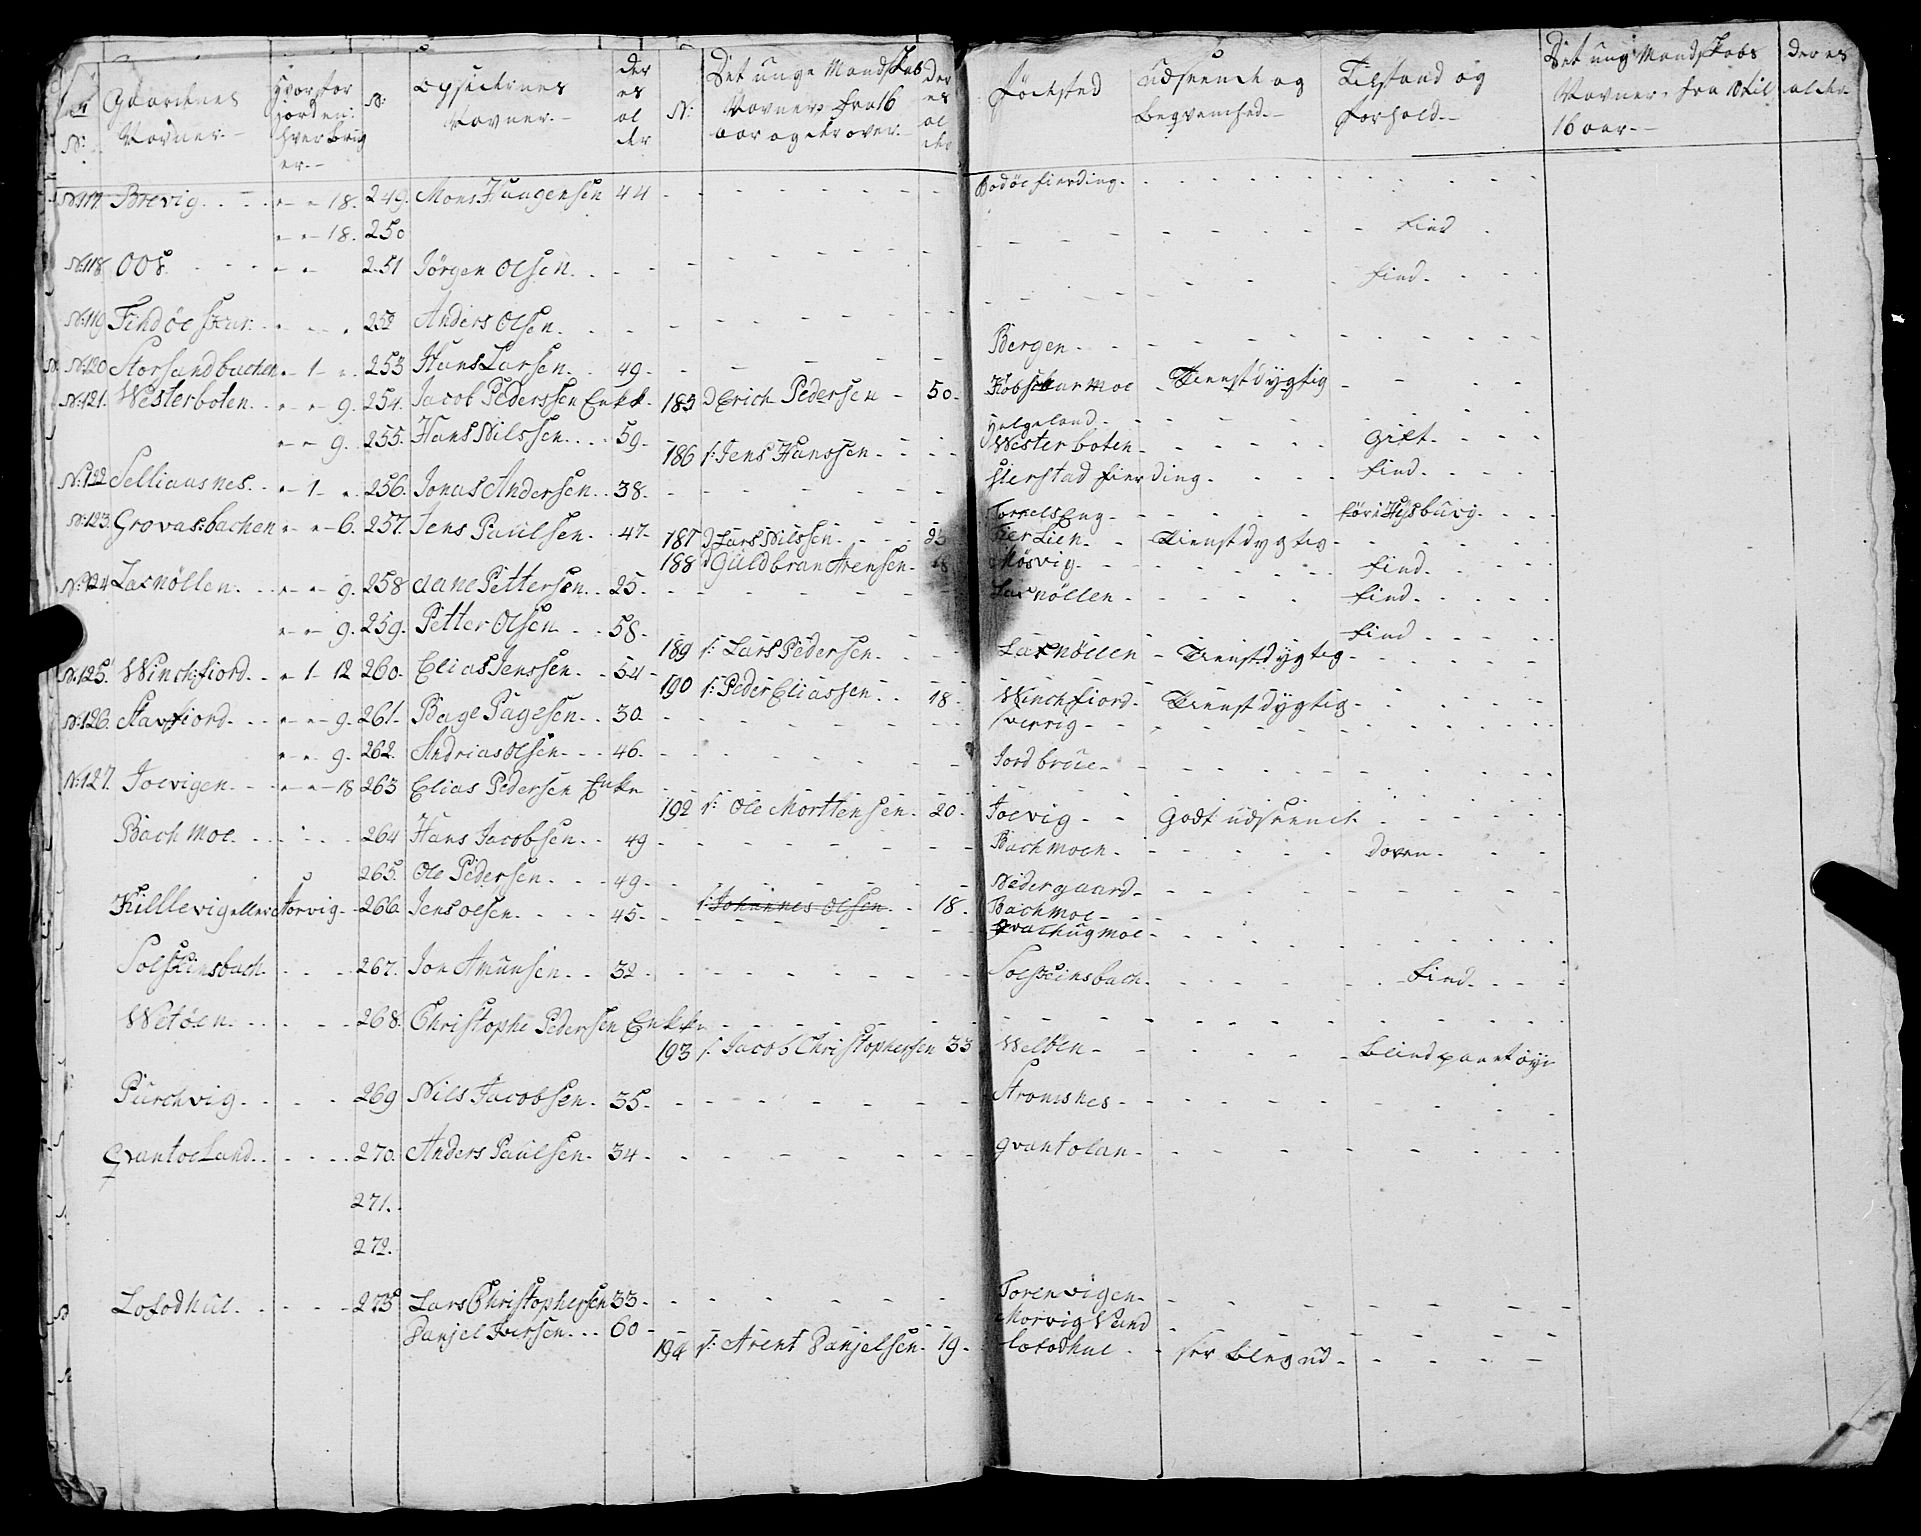 N: Gaardenes Navner.- Hvor stor Jorden: hver brug er.- N: Opsidernes Navner.- deres alder N: Det unge Mandskab Navner fra 16 aar og der over.- deres alder Födested Udseende og beqvemhed.- Tilstand og forhold.- Det ung Mandskabs Navner fra 10 til 16 aar.- deres alder
N:117. Brevig. - - 18. 249. Mons Haagensen 44 Bodöe fierding.
- - 18. 250 find
N:118 OOS. 251 Jörgen Olsen. find.
N:119 Findöe skar. 252 Anders Olsen.
N:120 Storsandbachen - 1 - 253 Hans Larsen. 49. Bergen
N:121. Westerboten. - - 9. 254. Jacob Pederssen Enke.
185 Erich Pedersen 50. Kobskarmoe Tienstdygtig
- - 9. 255. Hans Nilssen. 59. Helgeland
186 s: Jens Hanssen Westerboten gift.
N:122 Selliausnes. - 1 - 256. Jonas Andersen. 38. Hierstad fierding find.
N:123. Grovasbachen - - 6. 257. Jens Paulsen. 47. Tosselseng
187 Lars Nilssen Fier Lien Tienstdygtig
188 Guldbran Arensen. Mösvig find.
N:124 Laxnöllen. - - 9. 258 Aane Pettersen. 25. Laxnöllen find.
- - 9. 259. Petter Olsen 58. find
189 s: Lars Pedersen. Laxnöllen Tienstdygtig
N:125. Winchfiord. - 1 - 12 260. Elias Jenssen. 54
190 s: Peder Eliassen 18. Winchfiord Tienstdygtig
N:126. Stavfiord. - - 9. 261. Bage Pagesen. 30.
- - 9. 262. Andrias Olsen 46. Jordbrue
N:127. Joevigen. - - 18 263 Elias Pedersen Enke
192 s: Ole Morttensen. 20. Joevig Godt udseende
Bachmoe. 264 Hans Jacobsen. 49 Bachmoen doven.
265. Ole Pedersen. 49. Nedergaard
Killevig eller Storvig 266. Jens Olsen. 45. Bachmoe
s: Johannes Olsen. 18. Grachugmoe
Solskinsbach. 267. Jon Amunsen. 32 Solskinsbach. find.
Wetöen. 268. Christophe Pedersen Enke
193 s: Jacob Christophersen 33 Weltöen Blind paa et öye
Purchvig. 269 Nils Jacobsen. 35. Stromsnes
Qvantoe Land. 270. Anders Paulsen. 34 qvantolan
271.
272.
Lotodhul. 273 Lars Christophersen 33 Torenvigen
Danjel Iversen. 60 Morvig Vand
194 s: Arent Danjelsen. 19. Lotodhul ser bleg ud